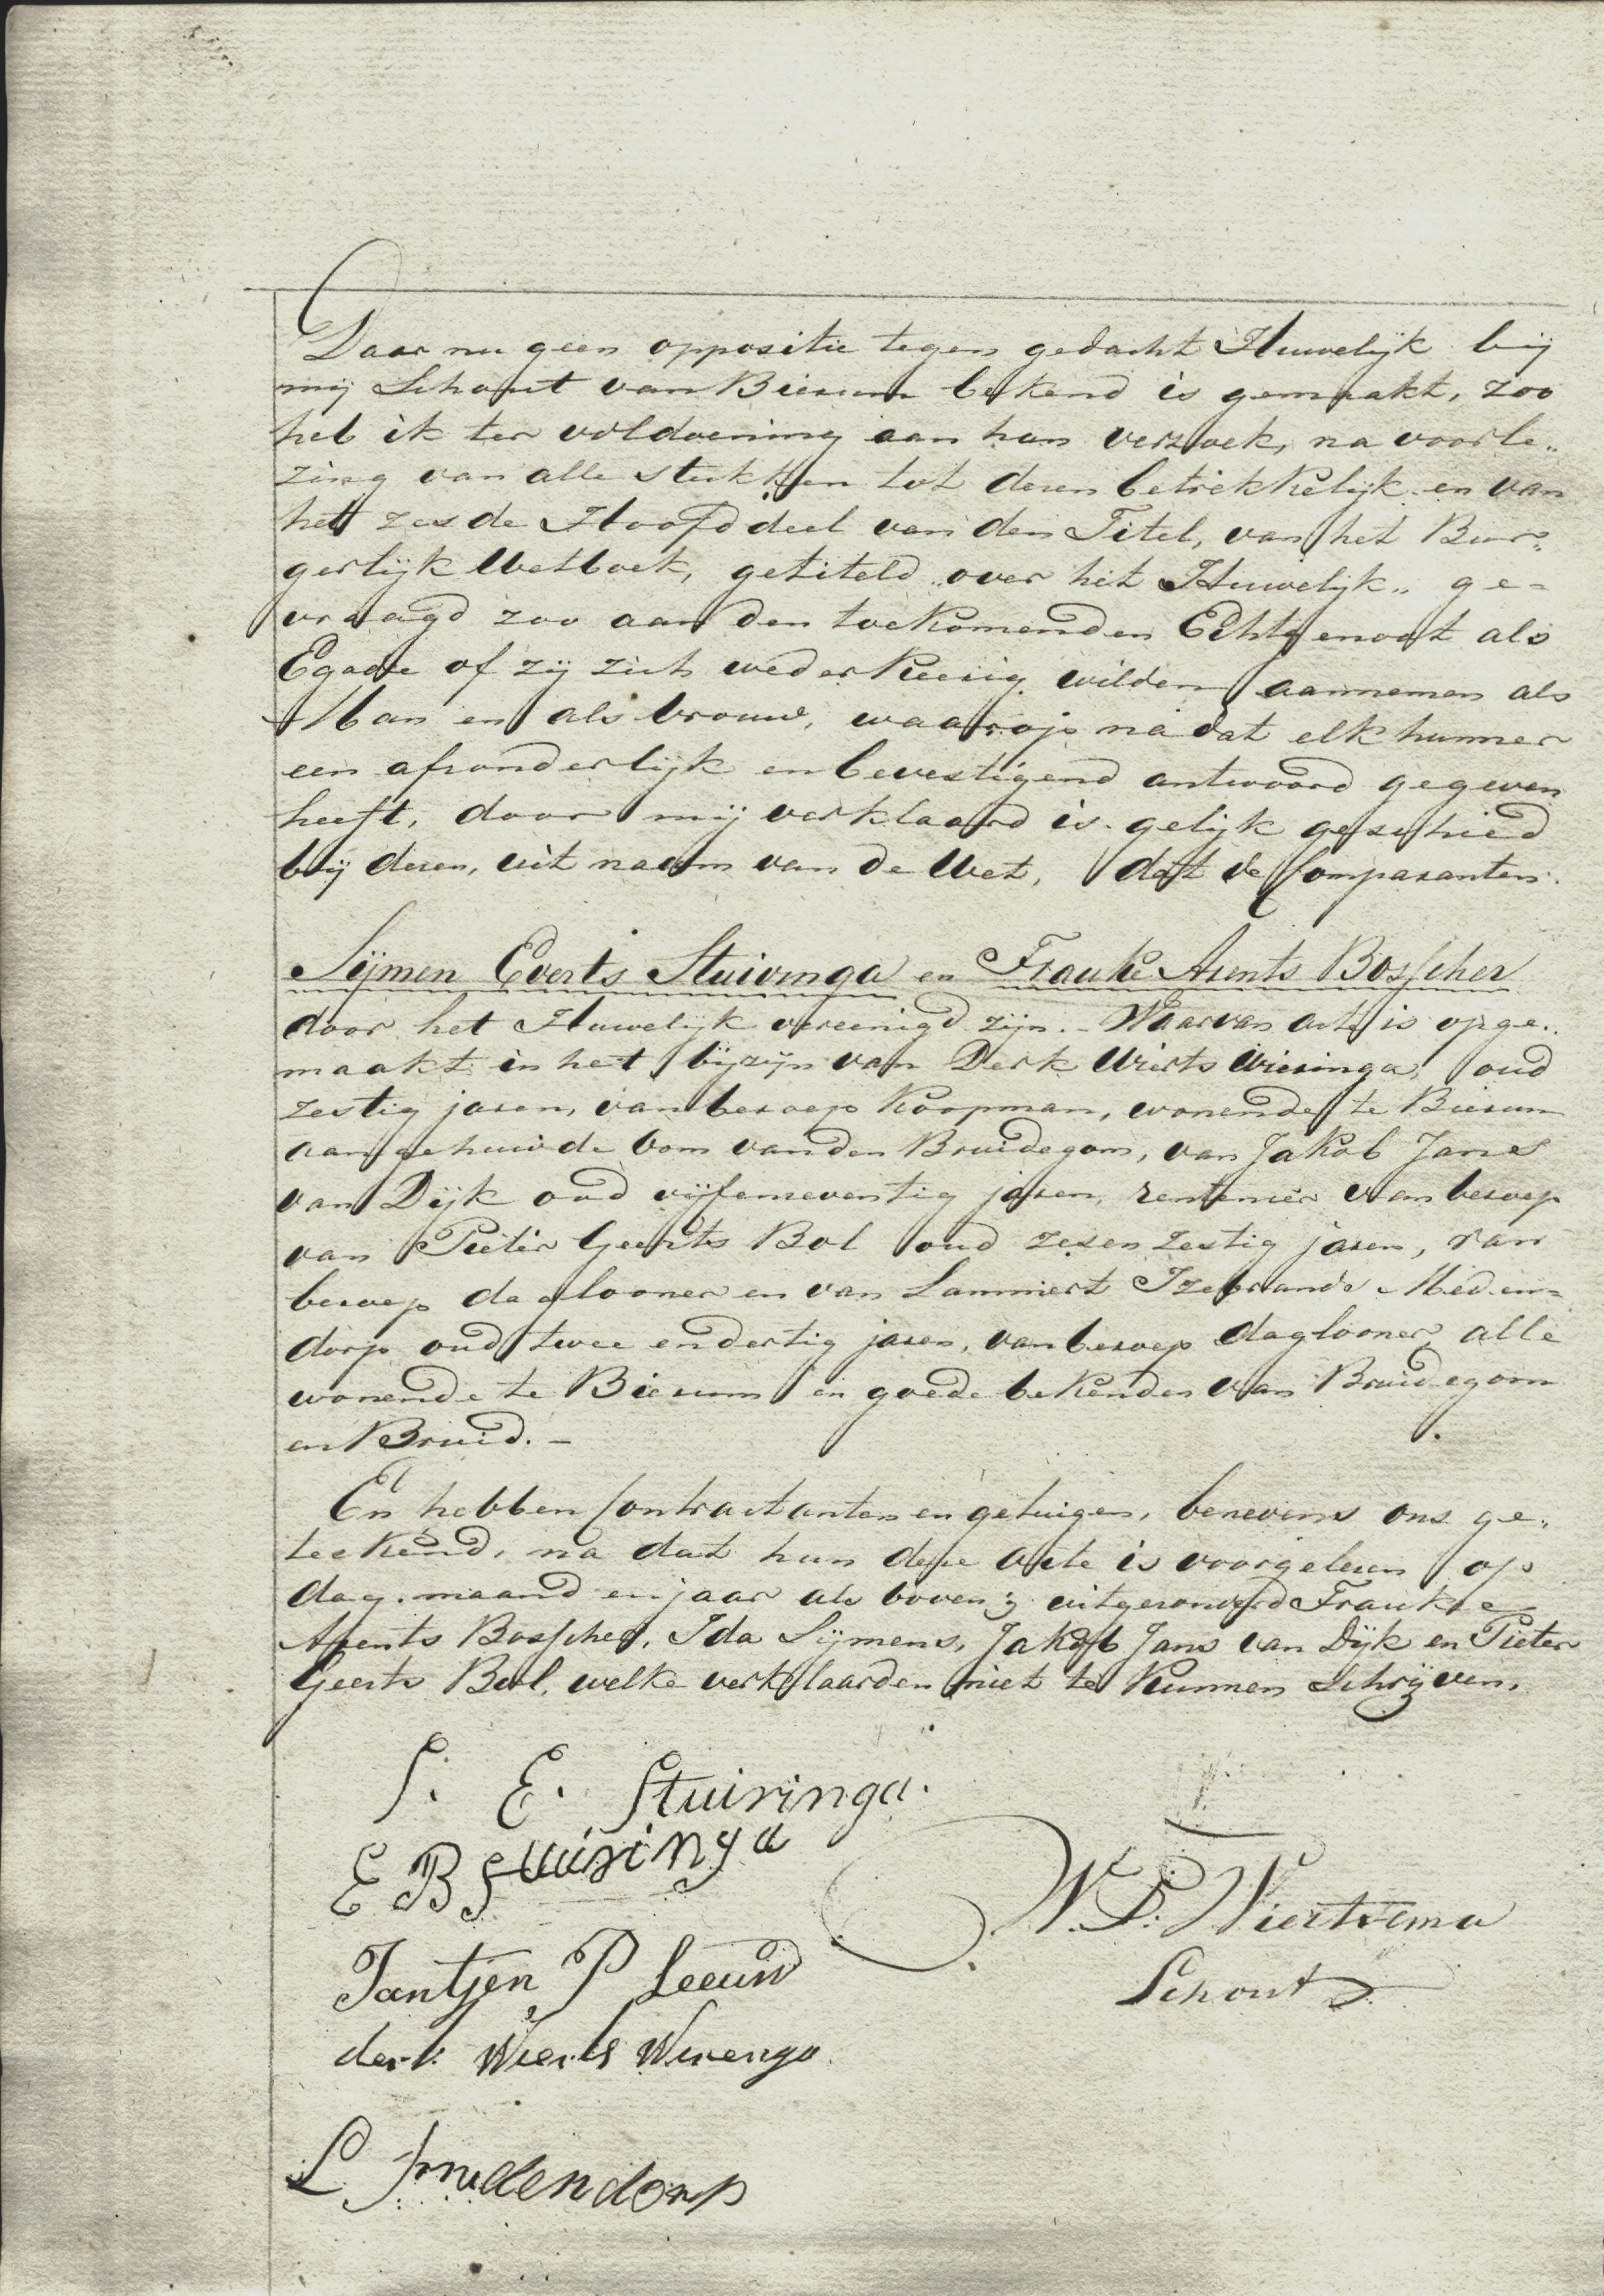 Daar nu geen oppositie tegen gedacht Huwelijk bij
mij Schout van Bierum bekend is gemaakt, zoo
heb ik ter voldoening aan hun verzoek, na voorle„
zing van alle stukken tot dezen betrekkelijk en van
het zesde Hoofddeel van den Titel, van het Bur„
gerlijk Wetboek, getiteld „over het Huwelijk„ ge=
vraagd zoo aan den toekomenden Echtgenoot als
Egade of zij zich wederkeerig wilden aannemen als
Man en als vrouw, waarop na dat elk hunner
een afzonderlijk en bevestigend antwoord gegeven
heeft, door mij verklaard is gelijk geschied
bij dezen, uit naam van de Wet, dat de Comparanten.
Sijmen Everts Stuivinga en Frauke Arents Bosscher
door het Huwelijk vereenigd zijn. – Waarvan acte is opge„
maakt in het bijzijn van Derk Wierts Wieringa, oud
zestig jaren, van beroep Koopman, wonende te Bierum
aangehuwde oom van den Bruidegom, van Jakob Jans
van Dijk oud vijfenseventig jaren, rentenier van beroep
van Pieter Geerts Bol oud zesenzestig jaren, van
beroep daglooner en van Lammert Izebrands Meden=
dorp oud twee en dertig jaren, van beroep daglooner, alle
wonende te Bierum en goede bekenden van Bruidegom
en Bruid. –
En hebben Contractanten en getuigen, benevens ons ge„
teekend, na dat hun deze acte is voorgelezen op
dag, maand en jaar als boven; uitgezonderd Frauke
Arents Bosscher, Ida Sijmens, Jakob Jans van Dijk en Pieter
Geerts Bol, welke verklaarden niet te kunnen schrijven.
S. E. Stuiringa.
E B Stuiringa
W. P. Wiertsema
Jantjen P Leeuw
Schout
derk Wierts Wierenga
L J medendorp